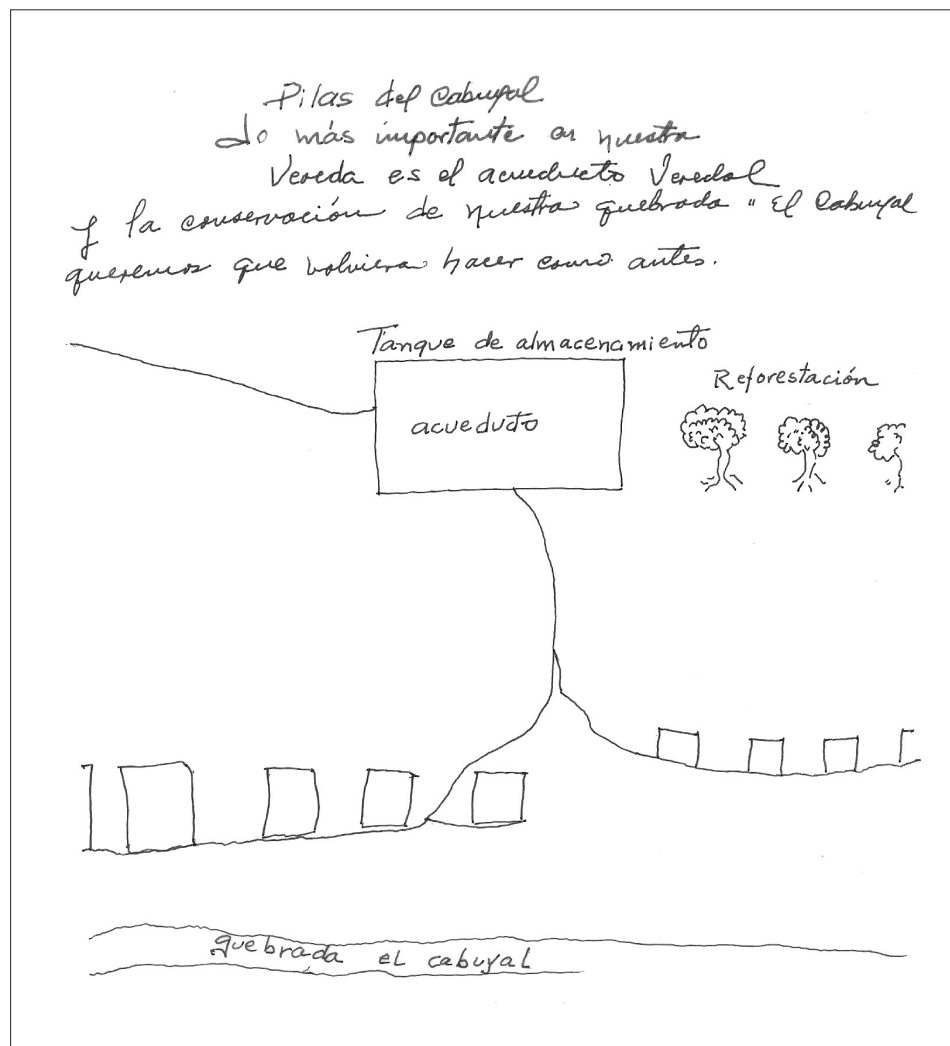 Pilas del Cabuyal
Lo más importante en nuestra
Vereda es el acueducto Veredal
y la conservación de nuestra quebrada "El Cabuyal
queremos que volviera hacer como antes.
Tanque de almacenamiento
Reforestación
acueducto
quebrada el cabuyal